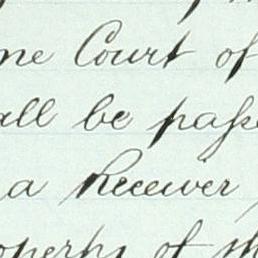 me Court of
all be passe
a Receiver
operty of th